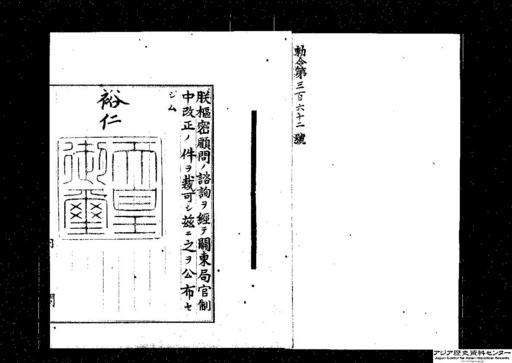 勅令第三百六十二號
朕樞密顧問ノ諮詢ヲ經テ關東局官制
中改正ノ件ヲ裁可シ茲ニ之ヲ公布セ
シム
裕仁
天皇
御璽
アジア歴史資料センター
Japan Center for Asian Historical Records